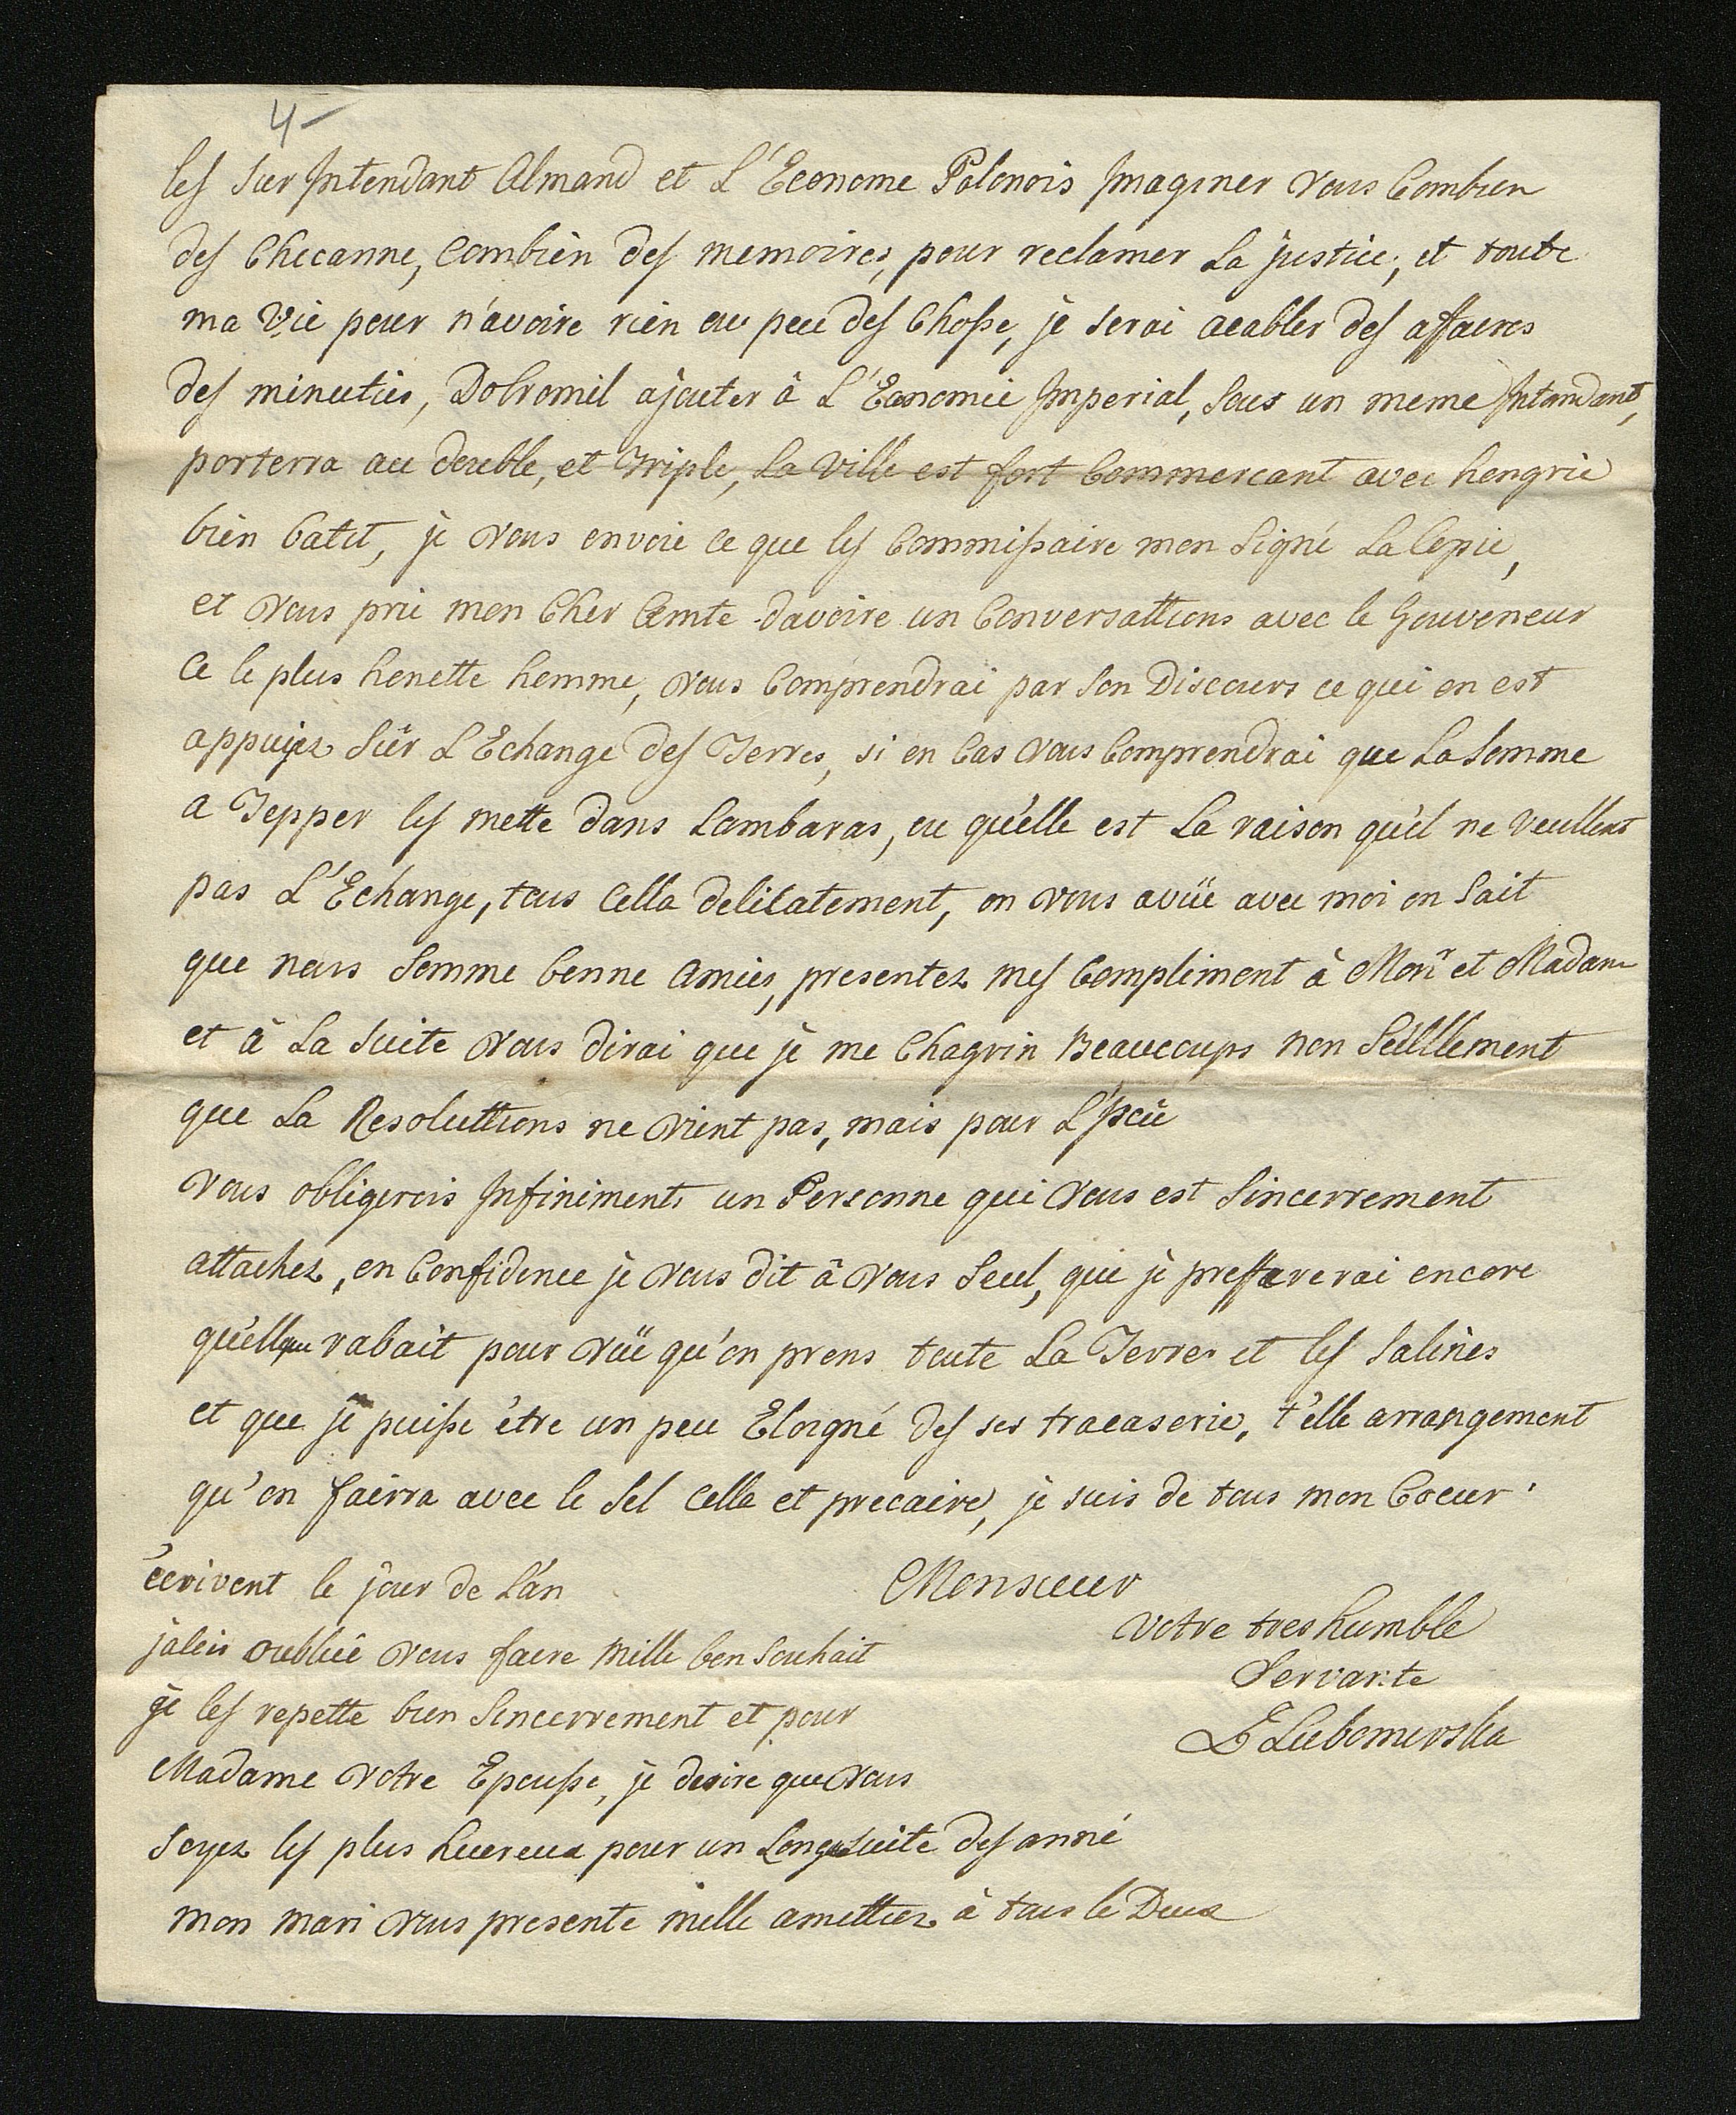 4
les Sur Intendant Almand et L'Econome Polonois Imaginer vous Combien
des Checanne, Combien des memoires, pour reclamer La justice, et toute
ma vie pour n'avoire rien ou peu des Chosse, je serai acabler des affaires
des minuties, Dobromil ajouter â L'Economie Imperial, sous un meme Intandant,
porterra au double, et Triple, La ville est fort Commercant avec hongrie
bien Batit, je vous envoie ce que les Commissaire mon Signé La Copie,
et vous prie mon Cher Comte davoire un Conversattions avec le Gouveneur
Ce le plus honette homme, vous Comprendrai par Son Discours ce qui en est
appuijez Sür L'Echange des Terres, si en Cas vous Comprendrai que La Somme
a Tepper les mette dans Lambaras, ou qu'elle est La raison qu'il ne veullent
pas L'Echange, tous Cella delicatement, on vous avüe avec moi on Sait
que nous Somme bonne Amies, presentez mes Compliment à Monr et Madam
et à La Suite vous dirai que je me Chagrin Beaucoups non Seulllement
que La Resoluttions ne vient pas, mais pour
vous obligerois Infiniment un Personne qui vous est Sincerrement
attachez, en Confidence je vous dit â vous Seul, que je prefferverai encore
qu'ellque rabait pour vüe qu'on prens toute La Terre et les Salines
et que je puisse être un peu Eloigné des ses tracaserie, t'elle arrangement
qu'on fairra avec le Sel Cella et precaire, je suis de tous mon Coeur
Monsieur
votre tres humble
Servante
Lubomirska
écrivent le jour de L'an
jalois oubliê vous faire Mille bon Souhait
je les repette bien Sincerrement et pour
Madame votre Epousse, je desire que vous
Soyez les plus heureux pour un Longue Suite des anné
mon mari vous presente mille amettiez à tous le Deux